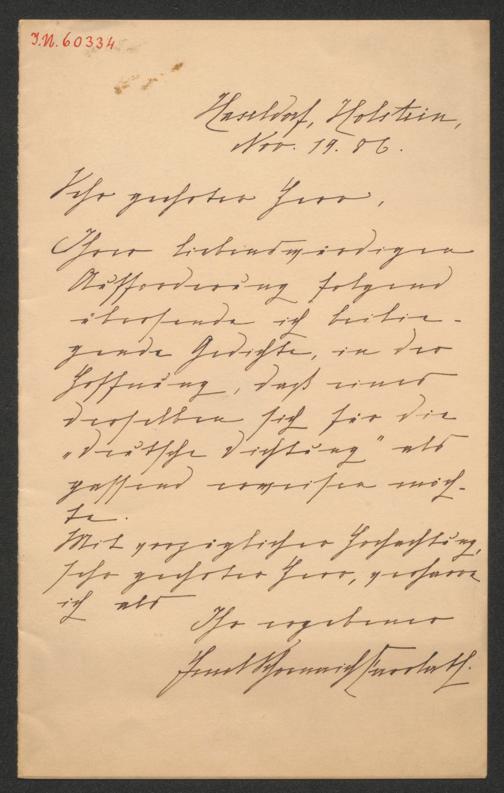 I.N. 60334
Haseldorf, Holstein,
Nov. 19. 86.
Sehr geehrter Herr,
Ihrer liebenswürdigen
Aufforderung folgend
übersende ich beilie-
gende Gedichte, in der
Hoffnung, daß eines
derselben sich für die
„Deutsche Dichtung" als
passend erweisen möch-
te.
Mit vorzüglicher Hochachtung,
sehr geehrter Herr, verharre
ich als
Ihr ergebener
Schoenaich Carolath.